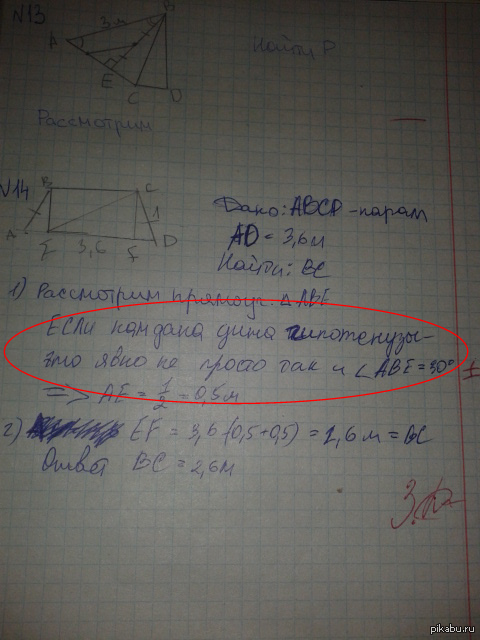 N13
3 м
B
A
E
C
D
Найти P
Рассмотрим
N14
B
C
1
A
E
3,6
F
D
Дано: ABCD - парам
AD = 3,6м
Найти: BC
1) Рассмотрим прямоуг. △ ABE
Если нам дана дина гипотенузы-
это явно не просто так и ∠ ABE = 30°
=> AE = 1/2 = 0,5 м
2) EF = 3,6 (0,5+0,5) = 2,6 м = BC
Ответ BC = 2,6м
pikabu.ru